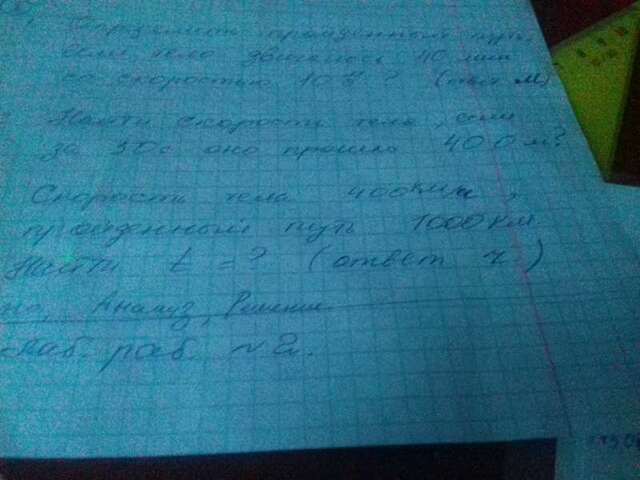 пройденный путь,
если тело двигалось 40 мин
со скоростью 10 ? (ответ м)
Найти скорость тела, если
за 30с оно прошло 400 м?
Скорость тела 400км/ч,
пройденный путь 1000 км
Найти t = ? (ответ ч.)
Анализ, Решение
лаб. раб. №2.